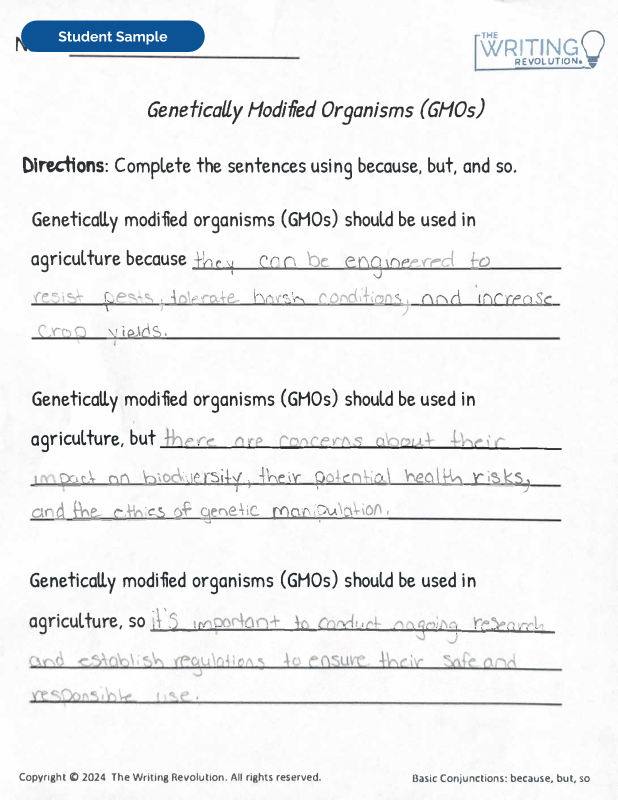 Student Sample
N
THE
WRITING
REVOLUTION®
Genetically Modified Organisms (GMOs)
Directions: Complete the sentences using because, but, and so.
Genetically modified organisms (GMOs) should be used in
agriculture because they can be engineered to
resist pests, tolerate harsh conditions, and increase
crop yields.
Genetically modified organisms (GMOs) should be used in
agriculture, but there are concerns about their
impact on biodiversity, their potential health risks,
and the ethics of genetic manipulation.
Genetically modified organisms (GMOs) should be used in
agriculture, so it's important to conduct ongoing research
and establish regulations to ensure their safe and
responsible use.
Copyright © 2024 The Writing Revolution. All rights reserved.
Basic Conjunctions: because, but, so